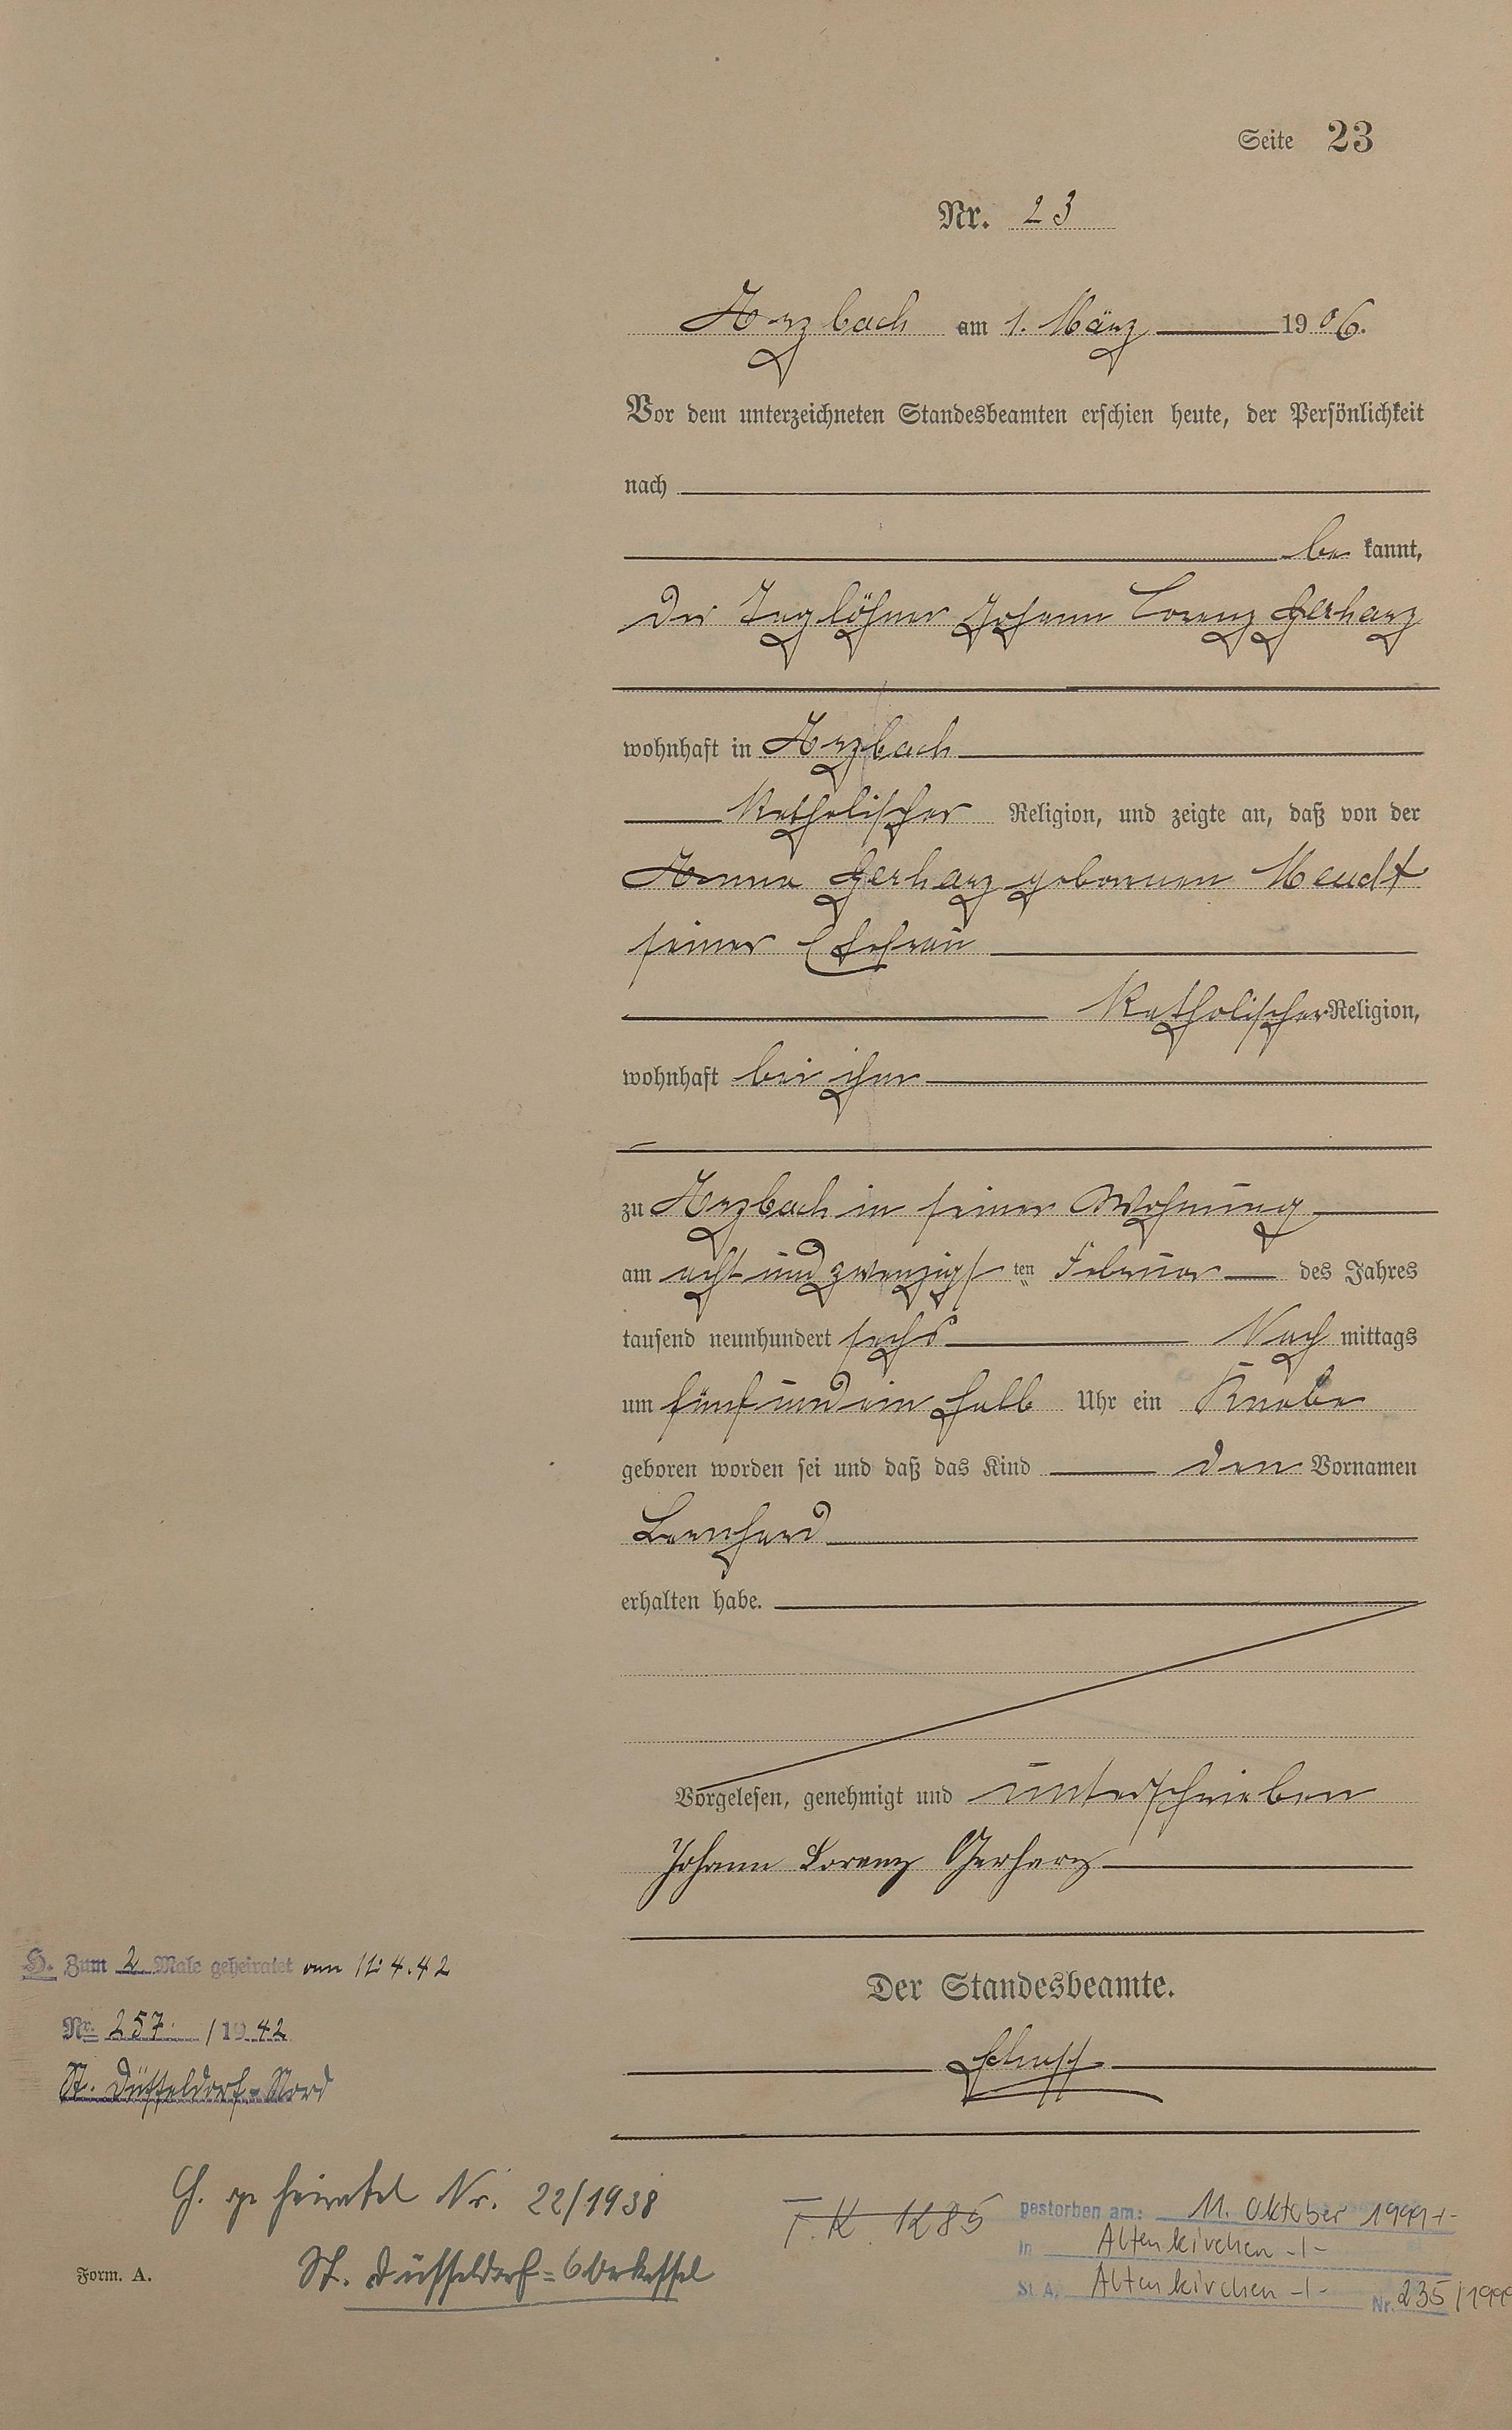 Seite 23
Nr. 23
Arzbach am 1. März 1906.
Vor dem unterzeichneten Standesbeamten erschien heute, der Persönlichkeit
nach
be kannt,
der Taglöhner Johann Lorenz Gerharz
wohnhaft in Arzbach
katholischer Religion, und zeigte an, daß von der
Anna Gerharz geborenen Meudt
seiner Ehefrau
katholischer Religion,
wohnhaft bei ihm
zu Arzbach in seiner Wohnung
am acht und zwanzigsten Februar des Jahres
tausend neunhundert sechs Nach mittags
um fünf und ein halb Uhr ein Knabe
geboren worden sei und daß das Kind den Vornamen
Bernhard
erhalten habe.
Vorgelesen, genehmigt und unterschrieben
Johann Lorenz Gerharz
Der Standesbeamte.
H. Zum 2 Male geheiratet am 11.4.42
Nr. 257 /1942
St. Düsseldorf-Nord
geheiratet Nr. 22/1938
St. Düsseldorf-Oberkassel
Form. A.
gestorben am: 11. Oktober 1999
in Altenkirchen
St. A. Altenkirchen Nr. 235/1999